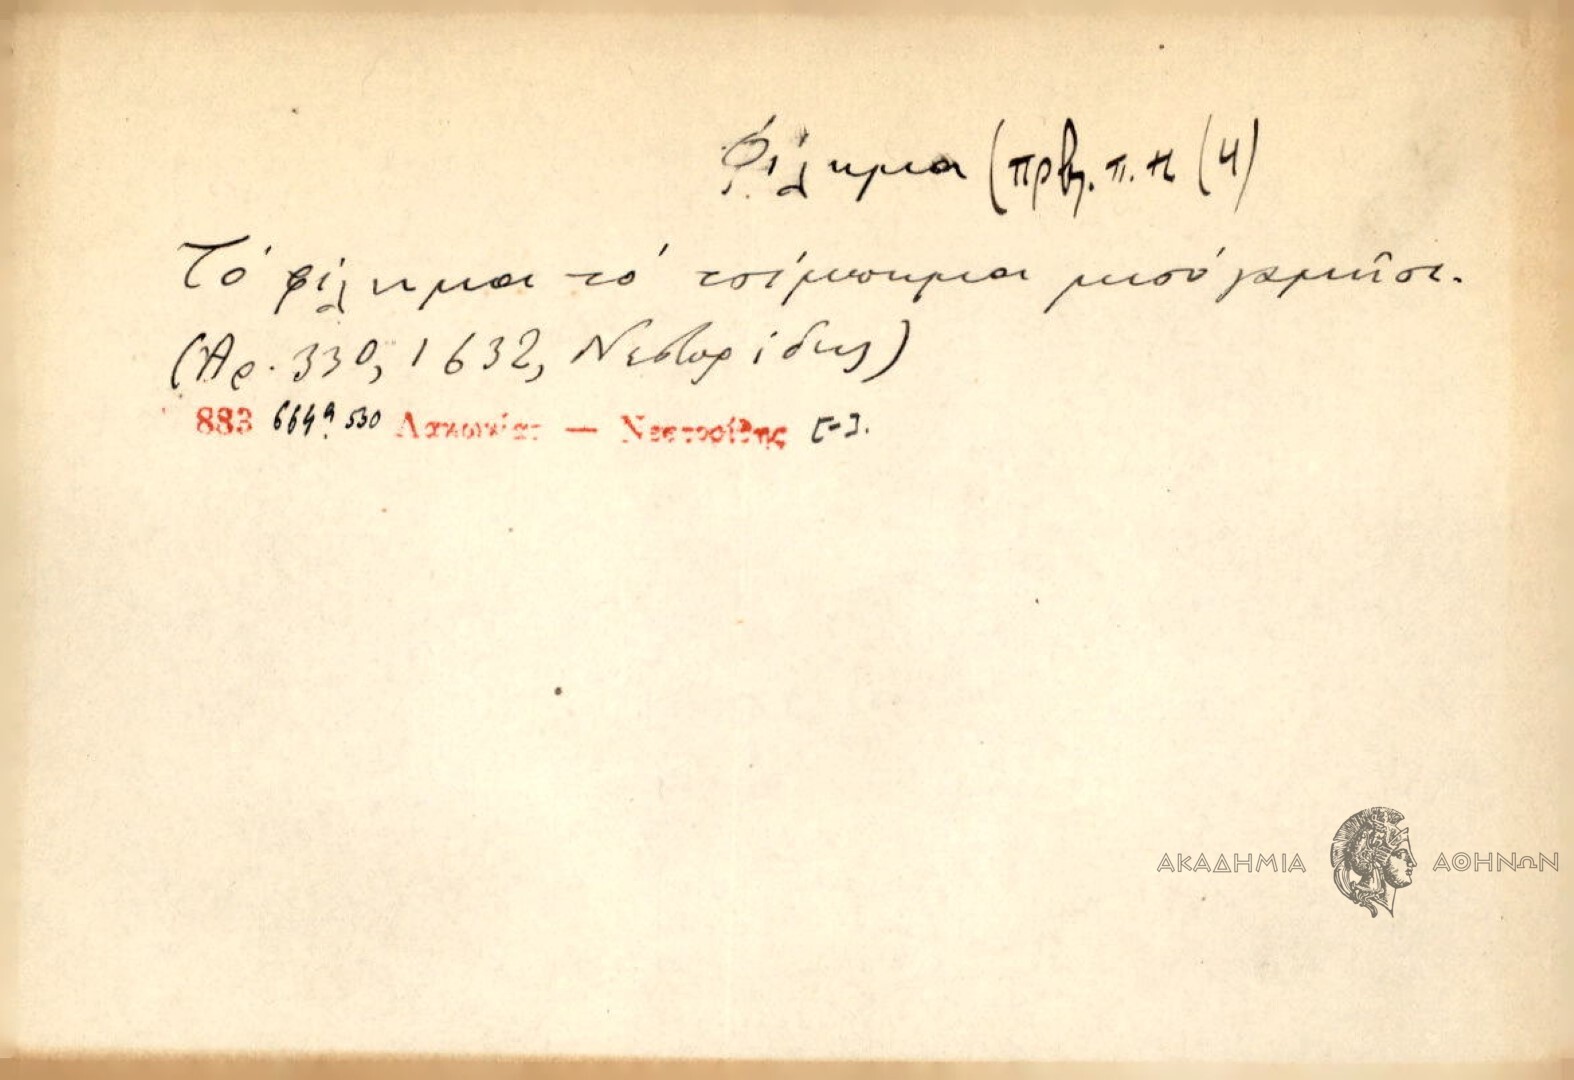 Φίλημα (πρβλ. π. π (4)
Τό φίλημα τό τσίμπημα μισό γαμῆσι.
(Ἀρ. 330, 1632, Νεστορίδης)
883 664α 530 Λακωνίας — Νεστορίδης [-].
ΑΚΑΔΗΜΙΑ ΑΘΗΝΩΝ